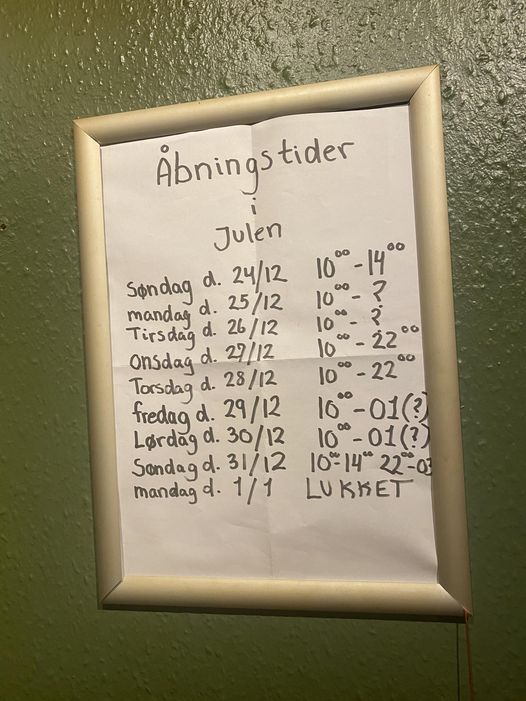 Åbningstider
i
Julen
Søndag d. 24/12 10⁰⁰ - 14⁰⁰
mandag d. 25/12 10⁰⁰ - ?
Tirsdag d. 26/12 10⁰⁰ - ?
Onsdag d. 27/12 10⁰⁰ - 22⁰⁰
Torsdag d. 28/12 10⁰⁰ - 22⁰⁰
fredag d. 29/12 10⁰⁰ - 01(?)
Lørdag d. 30/12 10⁰⁰ - 01(?)
Søndag d. 31/12 10⁰⁰-14⁰⁰ 22⁰⁰-
mandag d. 1/1 LUKKET